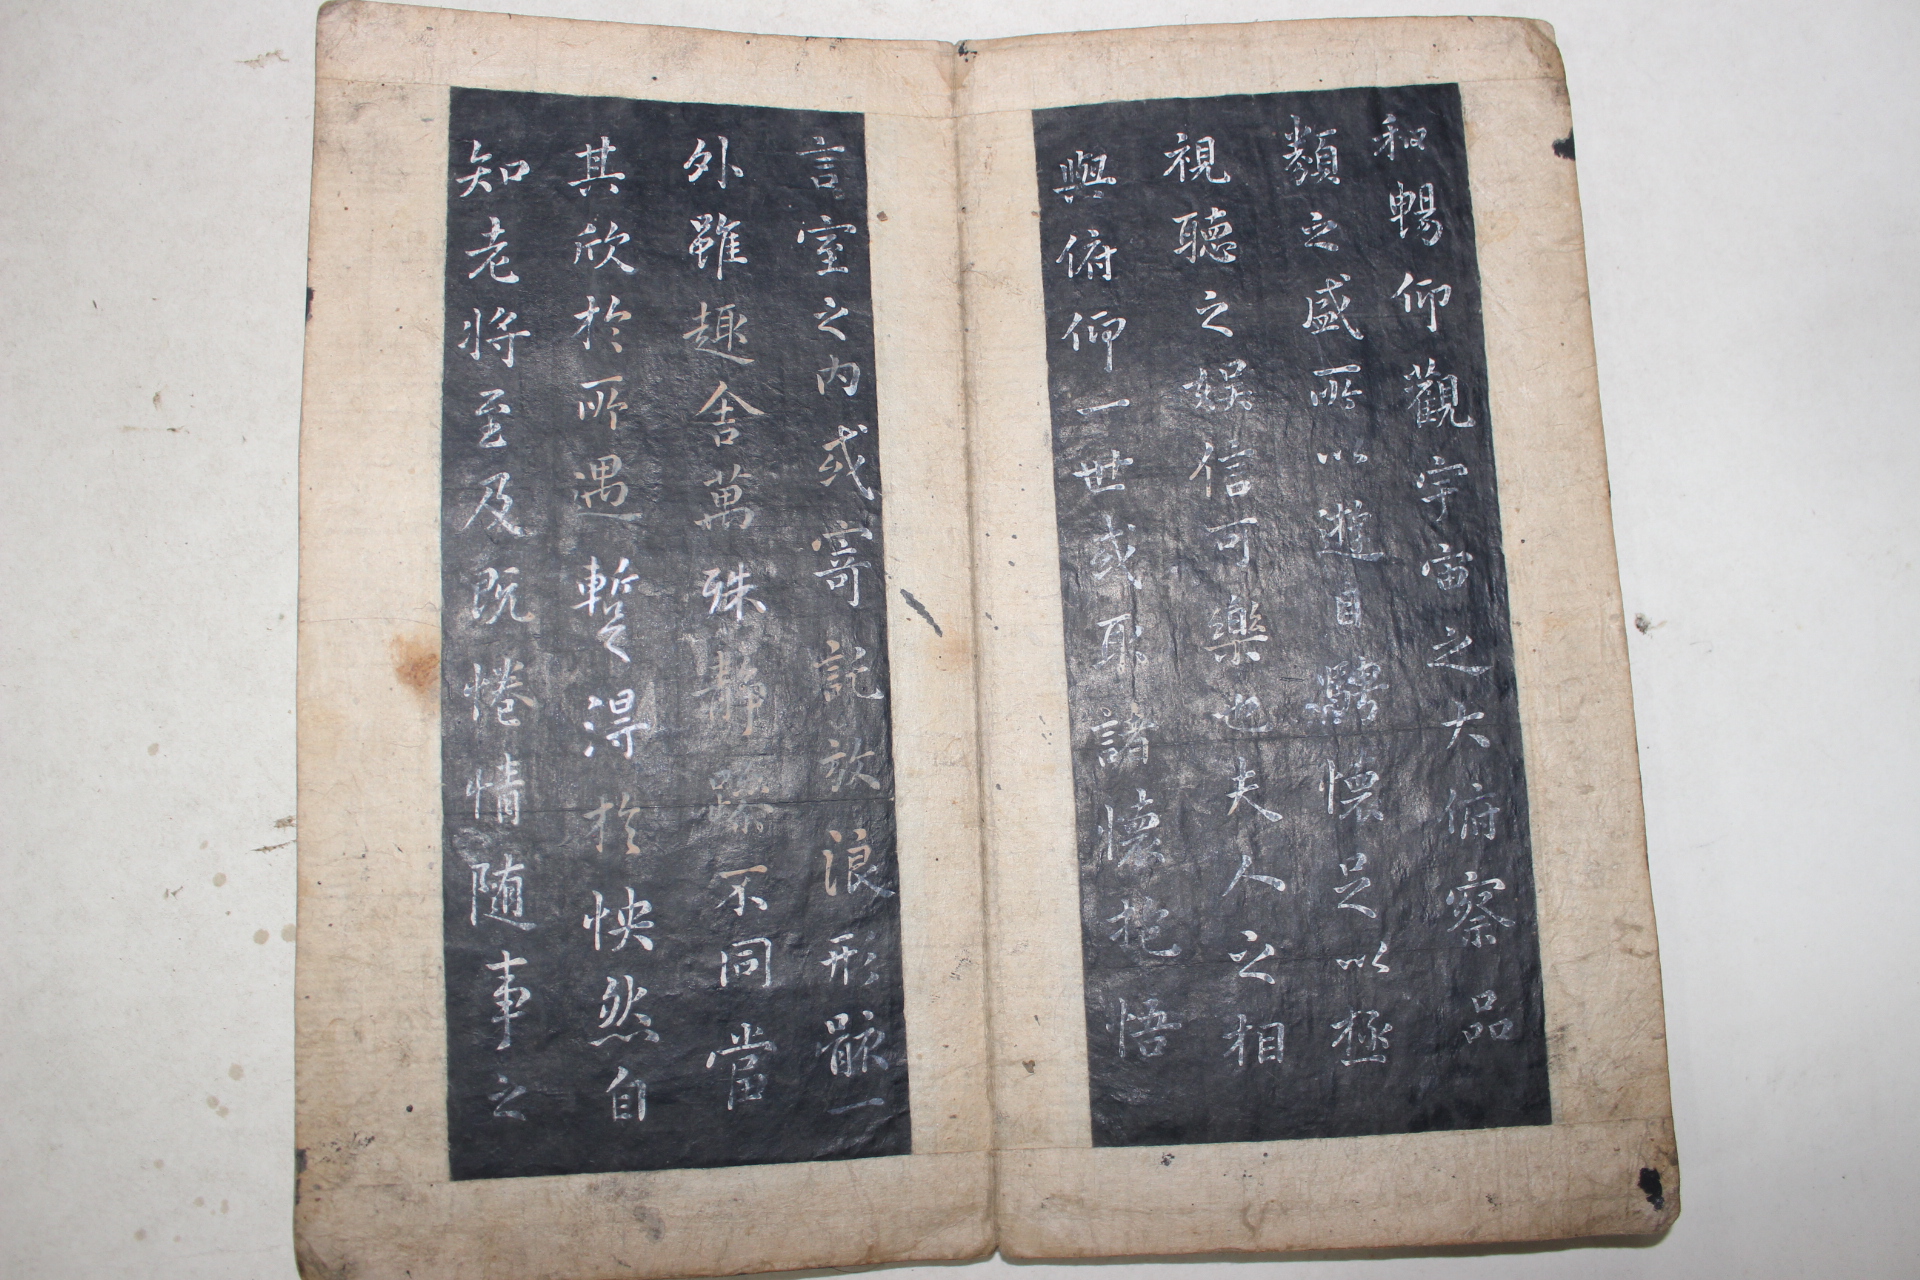 和暢仰觀宇宙之大俯察品
類之盛所以遊目騁懷足以極
視聽之娛信可樂也夫人之相
與俯仰一世或取諸懷抱悟
言室之內或寄託放浪形骸一
外雖趣舍萬殊靜躁不同當
其欣於所遇暫得於怏然自
知老將至及既惓情隨事之